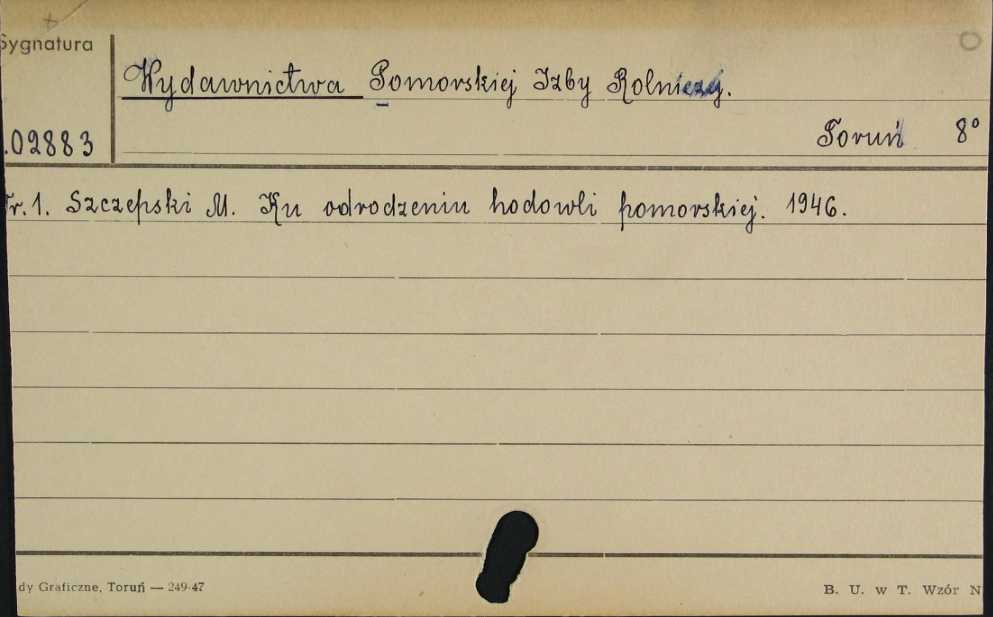 Sygnatura
Wydawnictwa Pomorskiej Izby Rolniczej.
.02883
Toruń 8°
Nr. 1. Szczepski M. Ku odrodzeniu hodowli pomorskiej. 1946.
dy Graficzne, Toruń — 249-47
B. U. w T. Wzór N